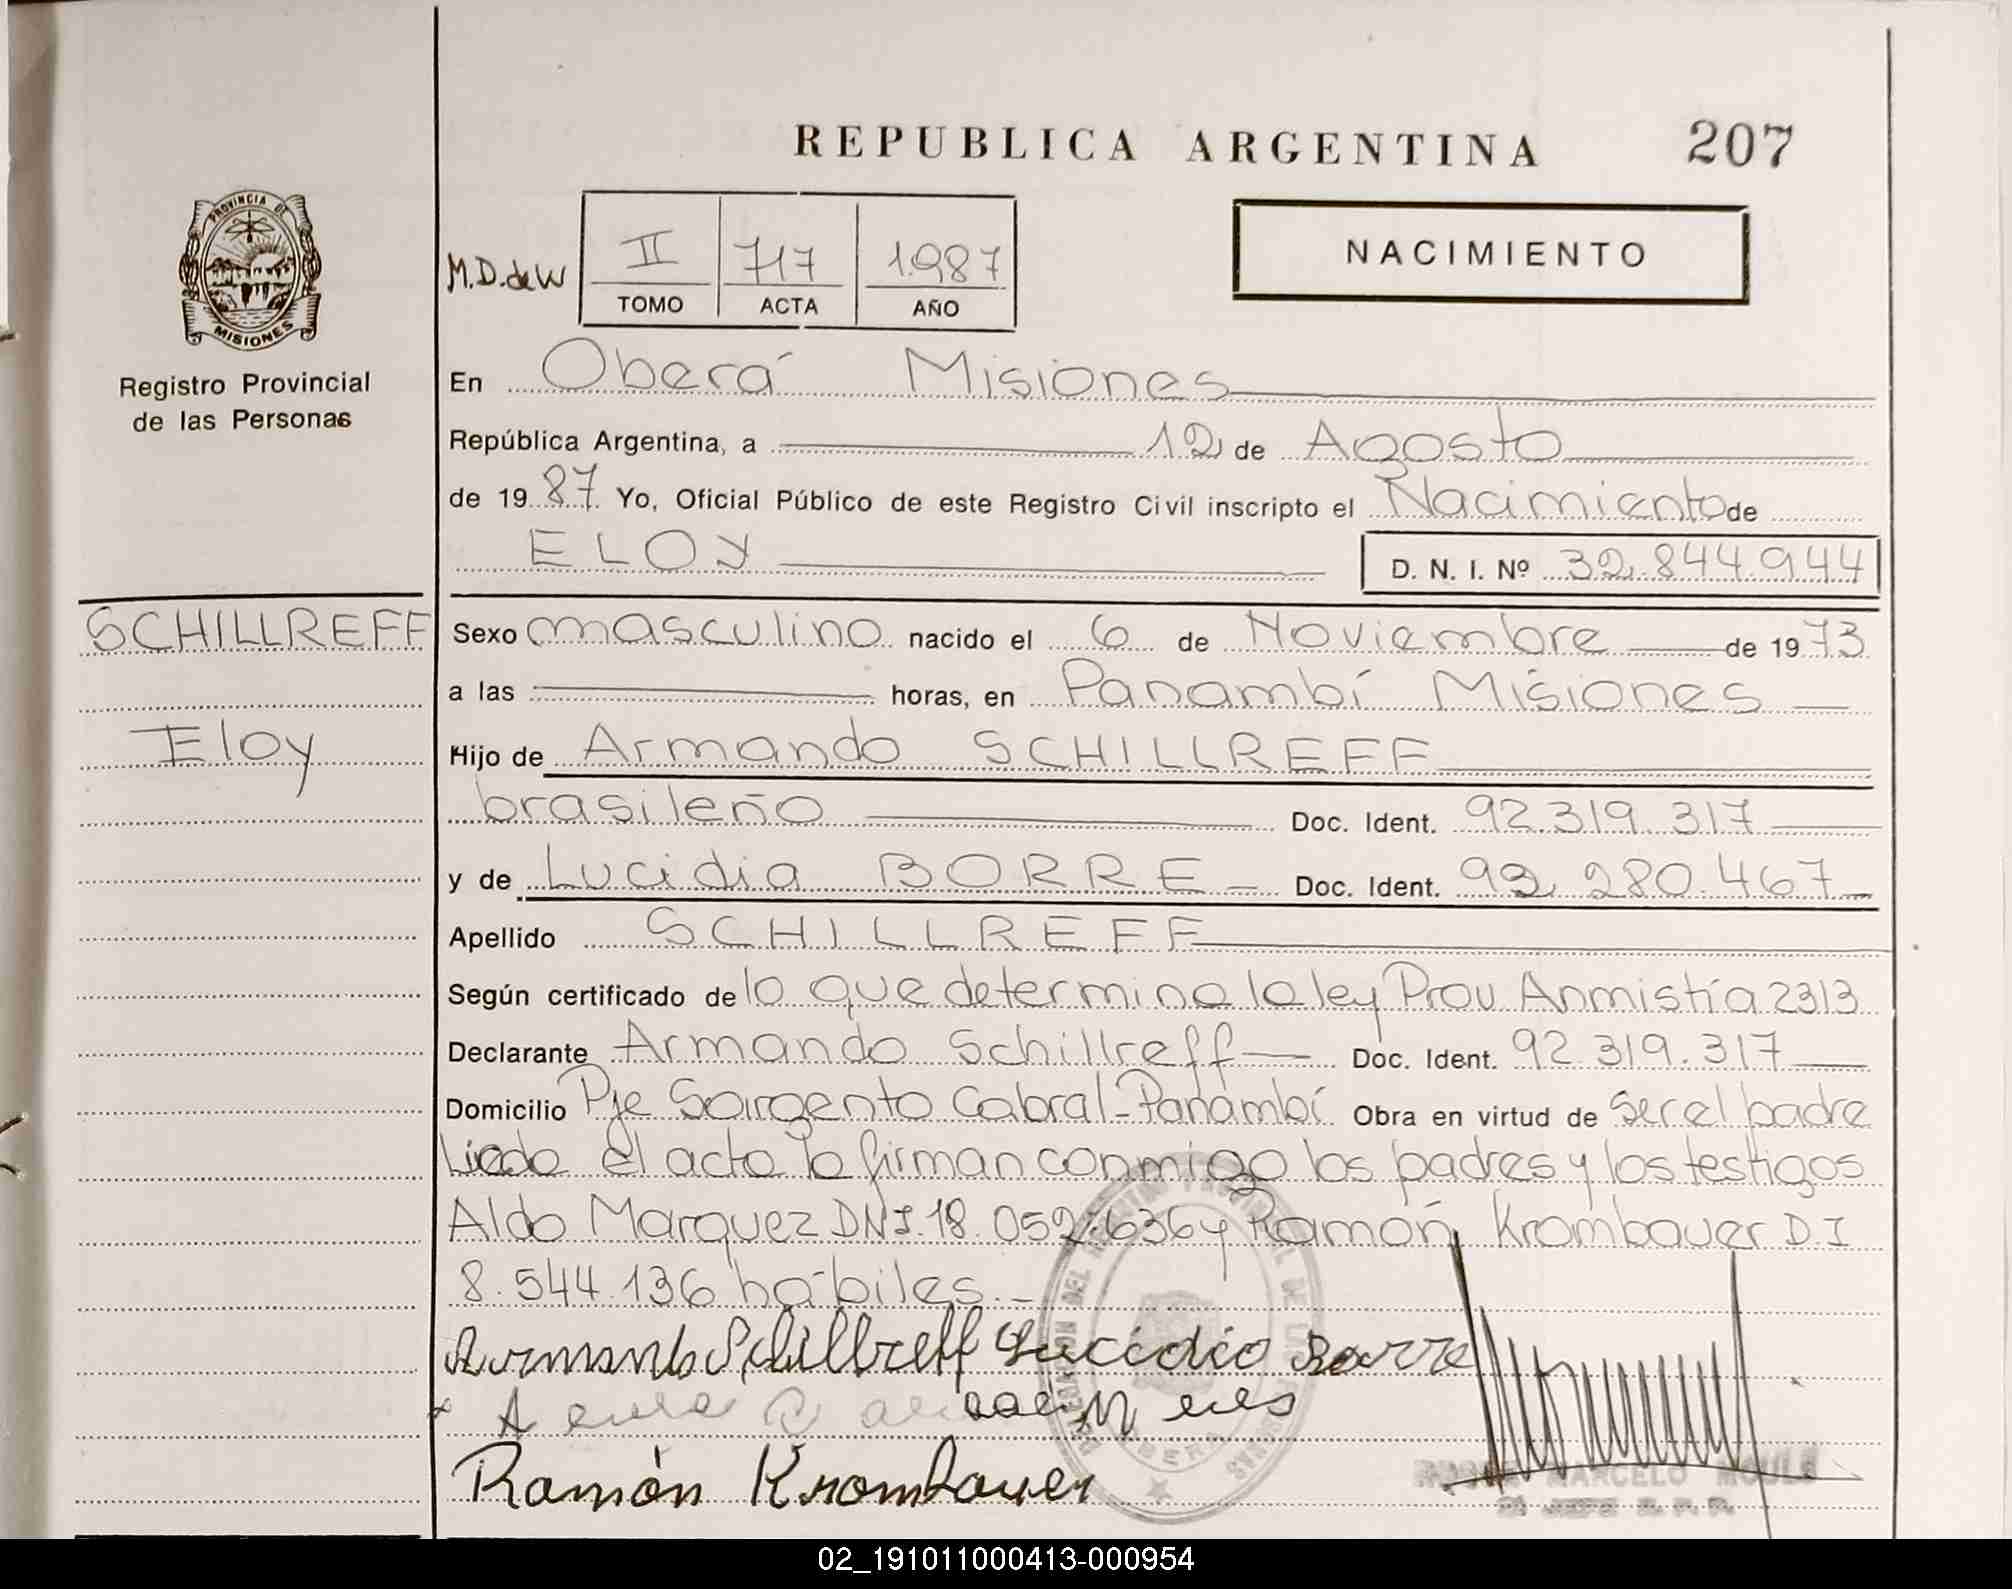 REPUBLICA ARGENTINA 207
PROVINCIA DE
MISIONES
Registro Provincial
de las Personas
M.D. de W
II 717 1.987
TOMO ACTA AÑO
NACIMIENTO
En Oberá Misiones
República Argentina, a 12 de Agosto
de 1987. Yo, Oficial Público de este Registro Civil inscripto el Nacimiento de
ELOY D. N. I. Nº 32.844.944
SCHILLREFF
Eloy
Sexo masculino nacido el 6 de Noviembre de 1973
a las horas, en Panambí Misiones
Hijo de Armando SCHILLREFF
brasileño Doc. Ident. 92.319.317
y de Lucidia BORRE Doc. Ident. 92.280.467
Apellido SCHILLREFF
Según certificado de lo que determina la ley Prov Anmistía 2313
Declarante Armando Schillreff Doc. Ident. 92.319.317
Domicilio Pje Sargento Cabral-Panambí Obra en virtud de ser el padre
Liedo El acta la firman conmigo los padres y los testigos
Aldo Marquez DNI.18.052.636 y Ramón Krombauer D I
8.544.136 hábiles.-
Armando Schillreff Lucidia Borre
Ramón Krombauer
MARCELO
02_191011000413-000954